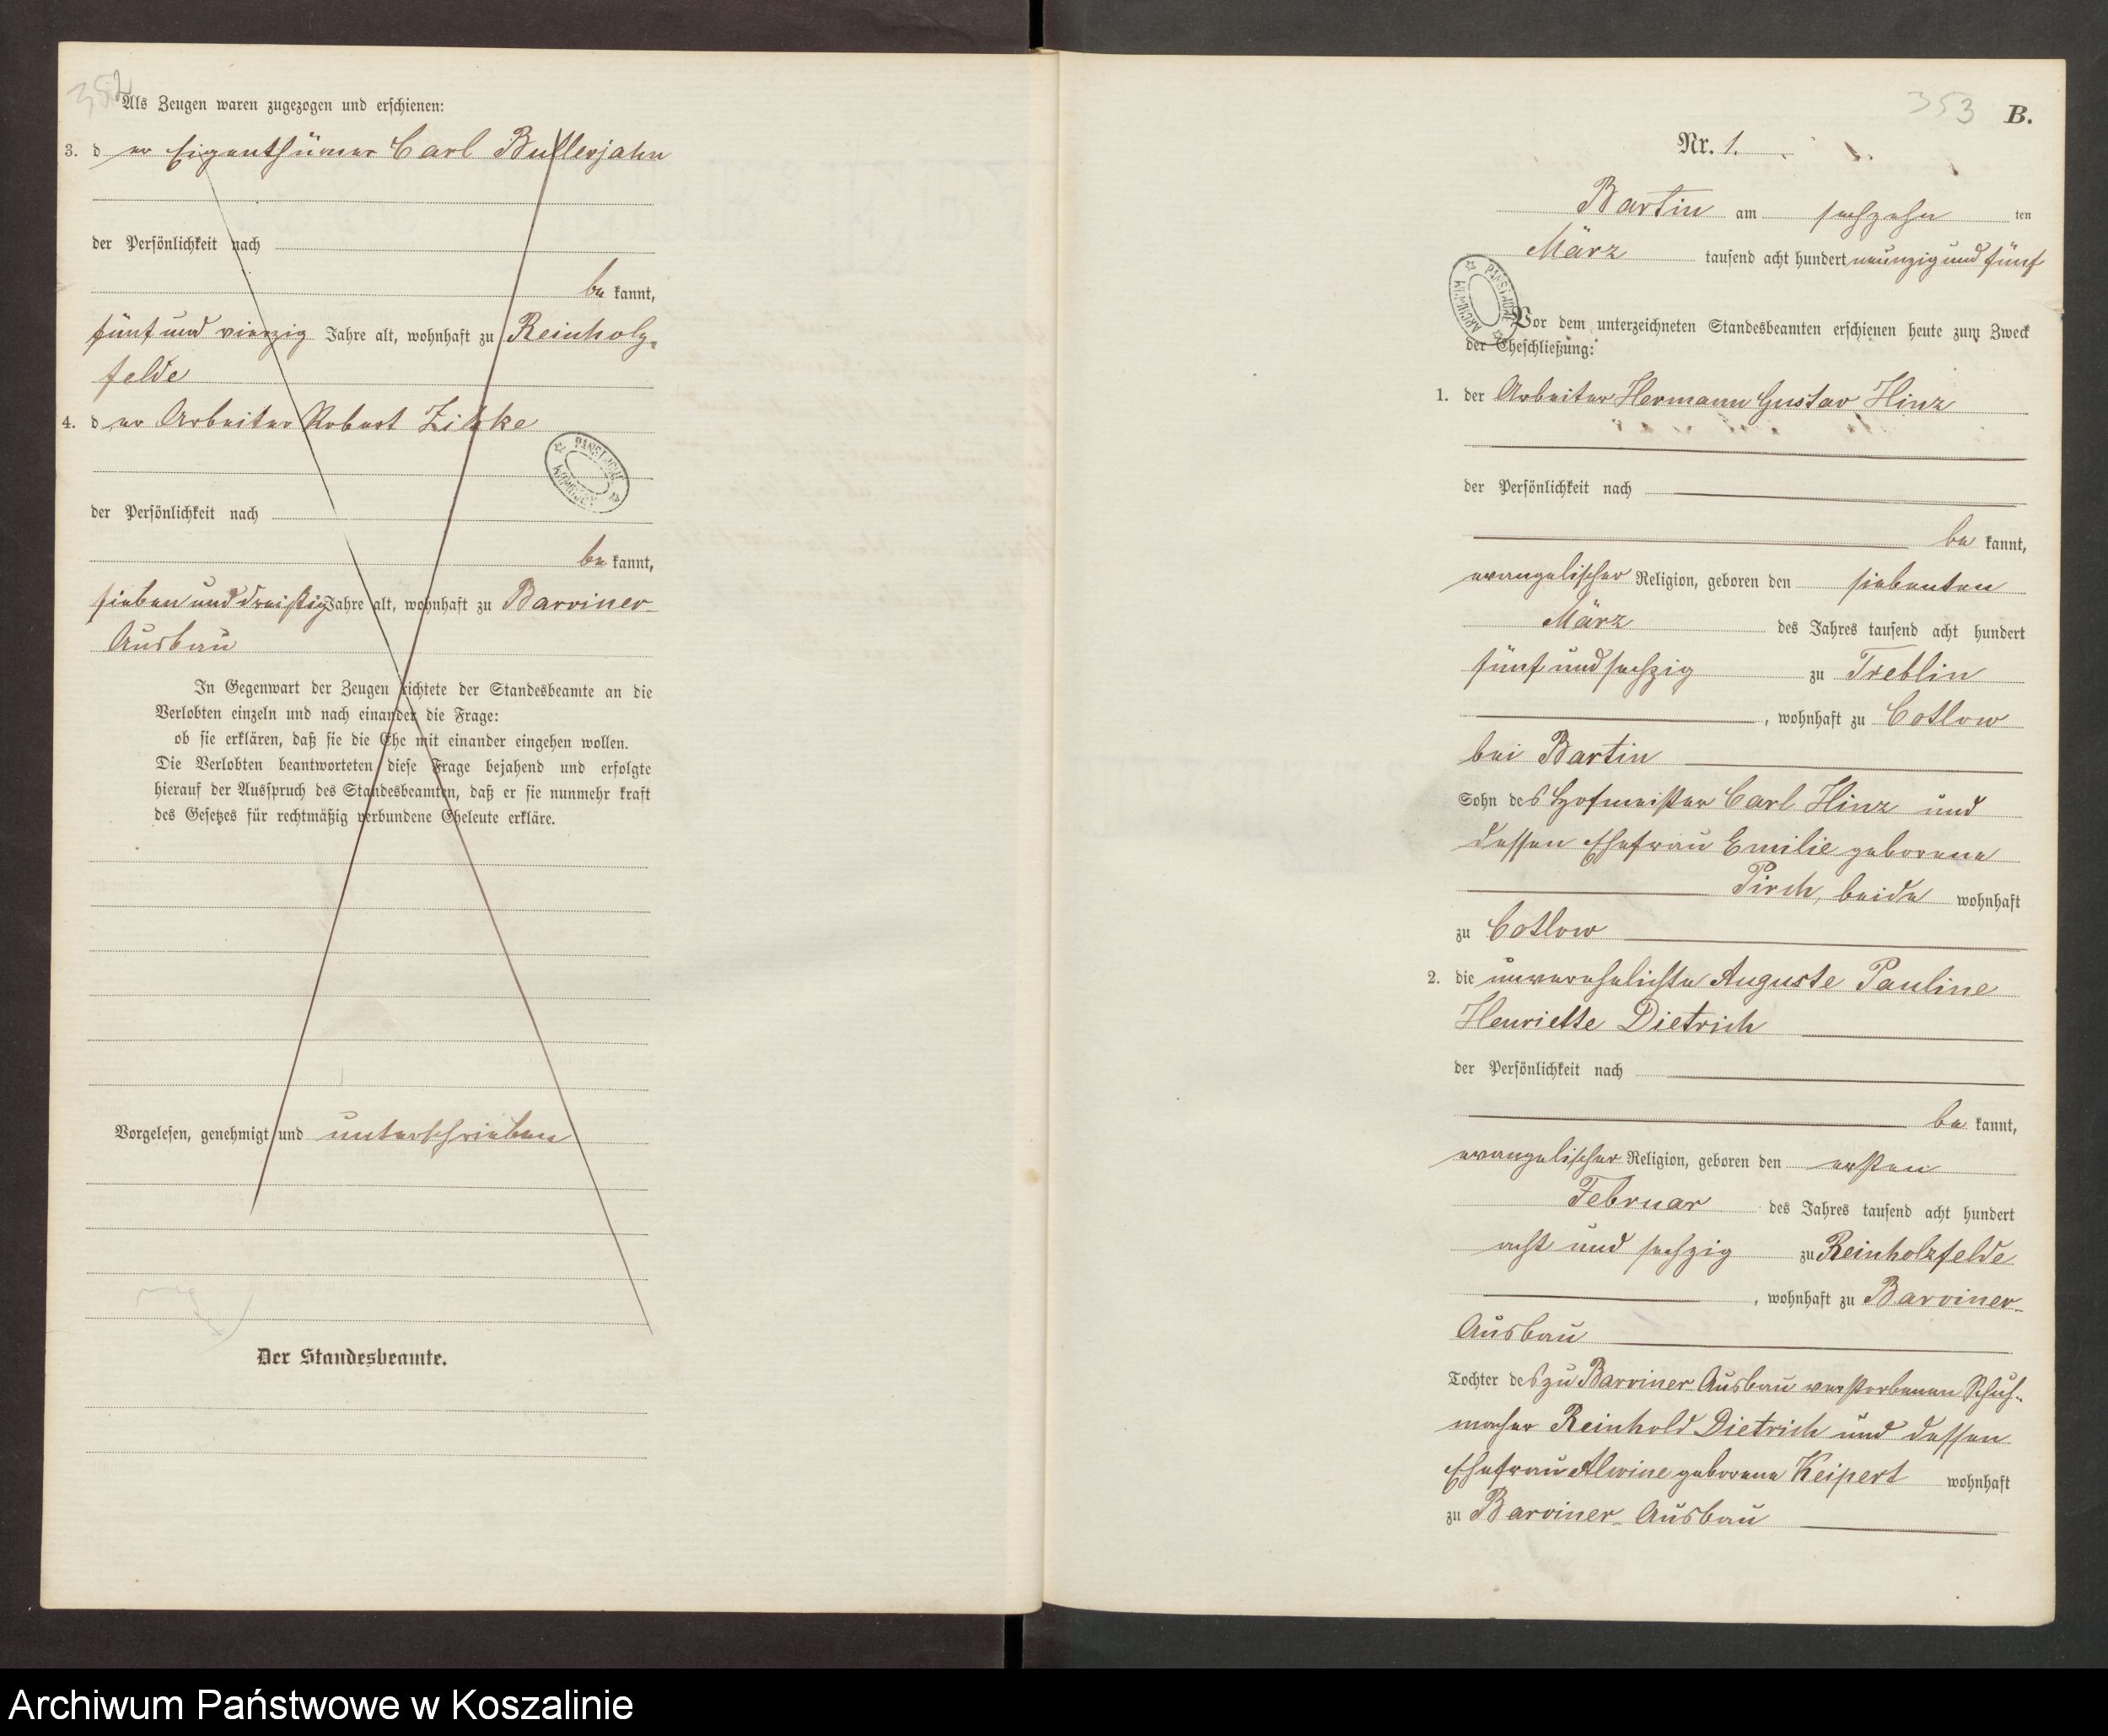 352
Als Zeugen waren zugezogen und erschienen:
3. d er Eigenthümer Carl Bullerjahn
der Persönlichkeit nach
be kannt,
fünf und vierzig Jahre alt, wohnhaft zu Reinholz-
felde
4. d er Arbeiter Robert Zilzke
der Persönlichkeit nach
be kannt,
sieben und dreißig Jahre alt, wohnhaft zu Barviner
Ausbau
In Gegenwart der Zeugen richtete der Standesbeamte an die
Verlobten einzeln und nach einander die Frage:
ob sie erklären, daß sie die Ehe mit einander eingehen wollen.
Die Verlobten beantworteten diese Frage bejahend und erfolgte
hierauf der Ausspruch des Standesbeamten, daß er sie nunmehr kraft
des Gesetzes für rechtmäßig verbundene Eheleute erkläre.
Vorgelesen, genehmigt und unterschrieben
Der Standesbeamte.
353 B.
Nr. 1.
Bartin am sechzehn ten
März tausend acht hundert neunzig und fünf
Vor dem unterzeichneten Standesbeamten erschienen heute zum Zweck
der Eheschließung:
1. der Arbeiter Hermann Gustav Hinz
der Persönlichkeit nach
be kannt,
evangelischer Religion, geboren den siebenten
März des Jahres tausend acht hundert
fünf und sechzig zu Treblin
, wohnhaft zu Cotlow
bei Bartin
Sohn des Hofmeister Carl Hinz und
dessen Ehefrau Emilie geborene
Pirch, beide wohnhaft
zu Cotlow
2. die unverehelichte Auguste Pauline
Henriette Dietrich
der Persönlichkeit nach
be kannt,
evangelischer Religion, geboren den ersten
Februar des Jahres tausend acht hundert
acht und sechzig zu Reinholzfelde
, wohnhaft zu Barviner-
Ausbau
Tochter des zu Barviner Ausbau verstorbenen Schuh-
macher Reinhold Dietrich und dessen
Ehefrau Alwine geborene Keipert wohnhaft
zu Barviner Ausbau
Archiwum Państwowe w Koszalinie